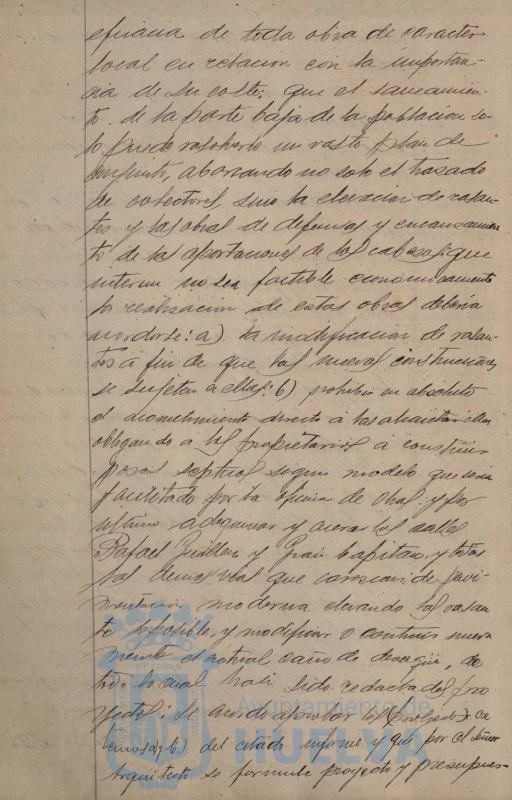 eficacia de toda obra de caracter
local en relacion con la importan-
cia de su coste; que el saneamien-
to de la parte baja de la poblacion so-
lo puede resolverlo un vasto plan de
conjunto, abarcando no solo el trazado
de colectores, sino la elevacion de rasan-
tes y las obras de defensas y encauzamien
to de las aportaciones de los cabezos; que
interin no sea factible economicamente
la realizacion de estas obras deberia
acordarse: a) la modificacion de rasan-
tes á fin de que las nuevas construcciones
se sujetan a ellas: b) prohibir en absoluto
el acometimiento directo á las alcantarillas
obligando a los propietarios á construir
fosas septicas segun modelo que seria
facilitado por la oficina de Obras; y por
ultimo adoquinar y acerar las calles
Rafael Guillen y Gran Capitan y todas
las demas vias que carezcan de pavi-
mentacion moderna elevando las rasan
te lo posible, y modificar o construir nueva
mente el actual caño de desagüe, de
todo lo cual han sido redactados pro
yectos. Se acordó aprobar los
del citado informe y que por el Señor
Arquitecto se formule proyecto y presupues-
Ayuntamiento de
HUELVA